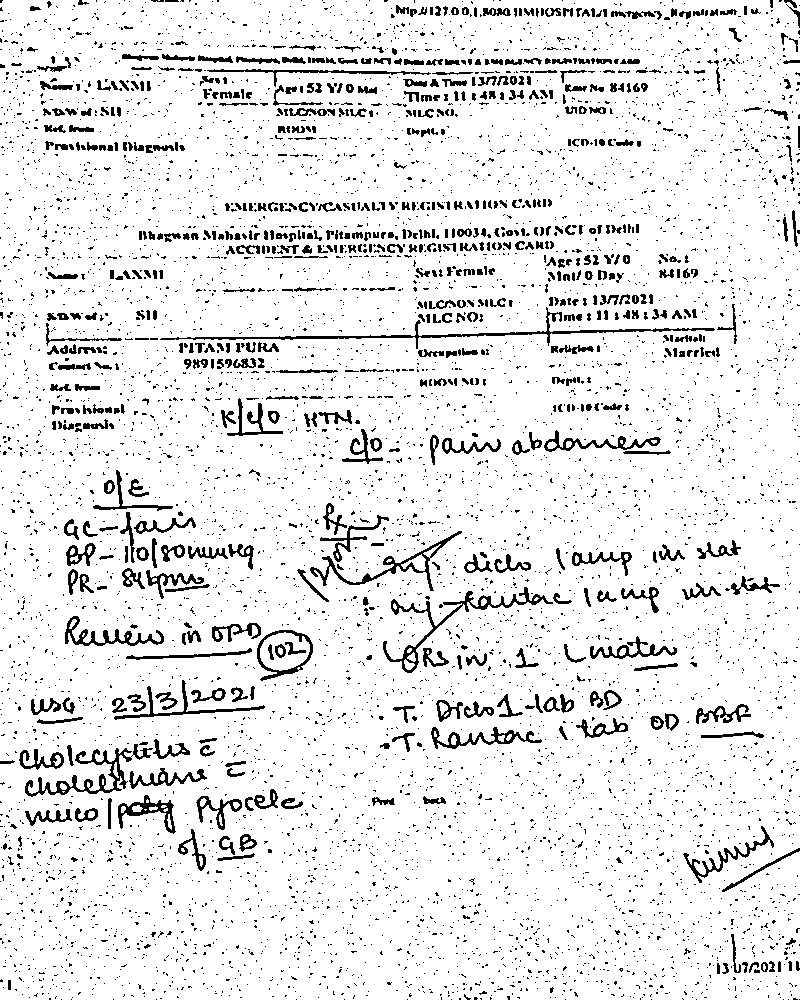 http://127.0.0.1:8080/HMHOSPITAL/Emergency_Registration_1.u...
Bhagwan Mahavir Hospital, Pitampura, Delhi, 110034, Govt. Of NCT of Delhi ACCIDENT & EMERGENCY REGISTRATION CARD
Name : LAXMI Sex : Female Age : 52 Y/ 0 Mnt Date & Time 13/7/2021 Time : 11 : 48 : 34 AM No 84169
S/D/W of : SH MLC/NON MLC : MLC NO. UID NO :
Ref. from ROOM Deptt. :
Provisional Diagnosis ICD-10 Code :
EMERGENCY/CASUALTY REGISTRATION CARD
Bhagwan Mahavir Hospital, Pitampura, Delhi, 110034, Govt. Of NCT of Delhi
ACCIDENT & EMERGENCY REGISTRATION CARD
Name : LAXMI Sex: Female Age : 52 Y/ 0 Mnt/ 0 Day No. : 84169
S/D/W of : SH MLC/NON MLC : MLC NO: Date : 13/7/2021 Time : 11 : 48 : 34 AM
Address: PITAM PURA Occupation : Religion : Marital: Married
Contact No. : 9891596832
Ref. from ROOM NO : Deptt. :
Provisional Diagnosis ICD-10 Code :
K/c/o HTN.
c/o - pain abdomen
O/E
GC - fair
BP - 110/80mmHg
PR - 84bpm
Review in OPD
102
USG 23/3/2021
- Cholecystitis c̄
cholelithiasis c̄
muco/ pyocele
of GB.
Rx
Inj diclo 1 amp im stat
Inj - Rantac 1 amp im stat
ORS in 1 L water
T. Diclo 1 tab BD
T. Rantac 1 tab OD BBF
Print Back
13/07/2021 11